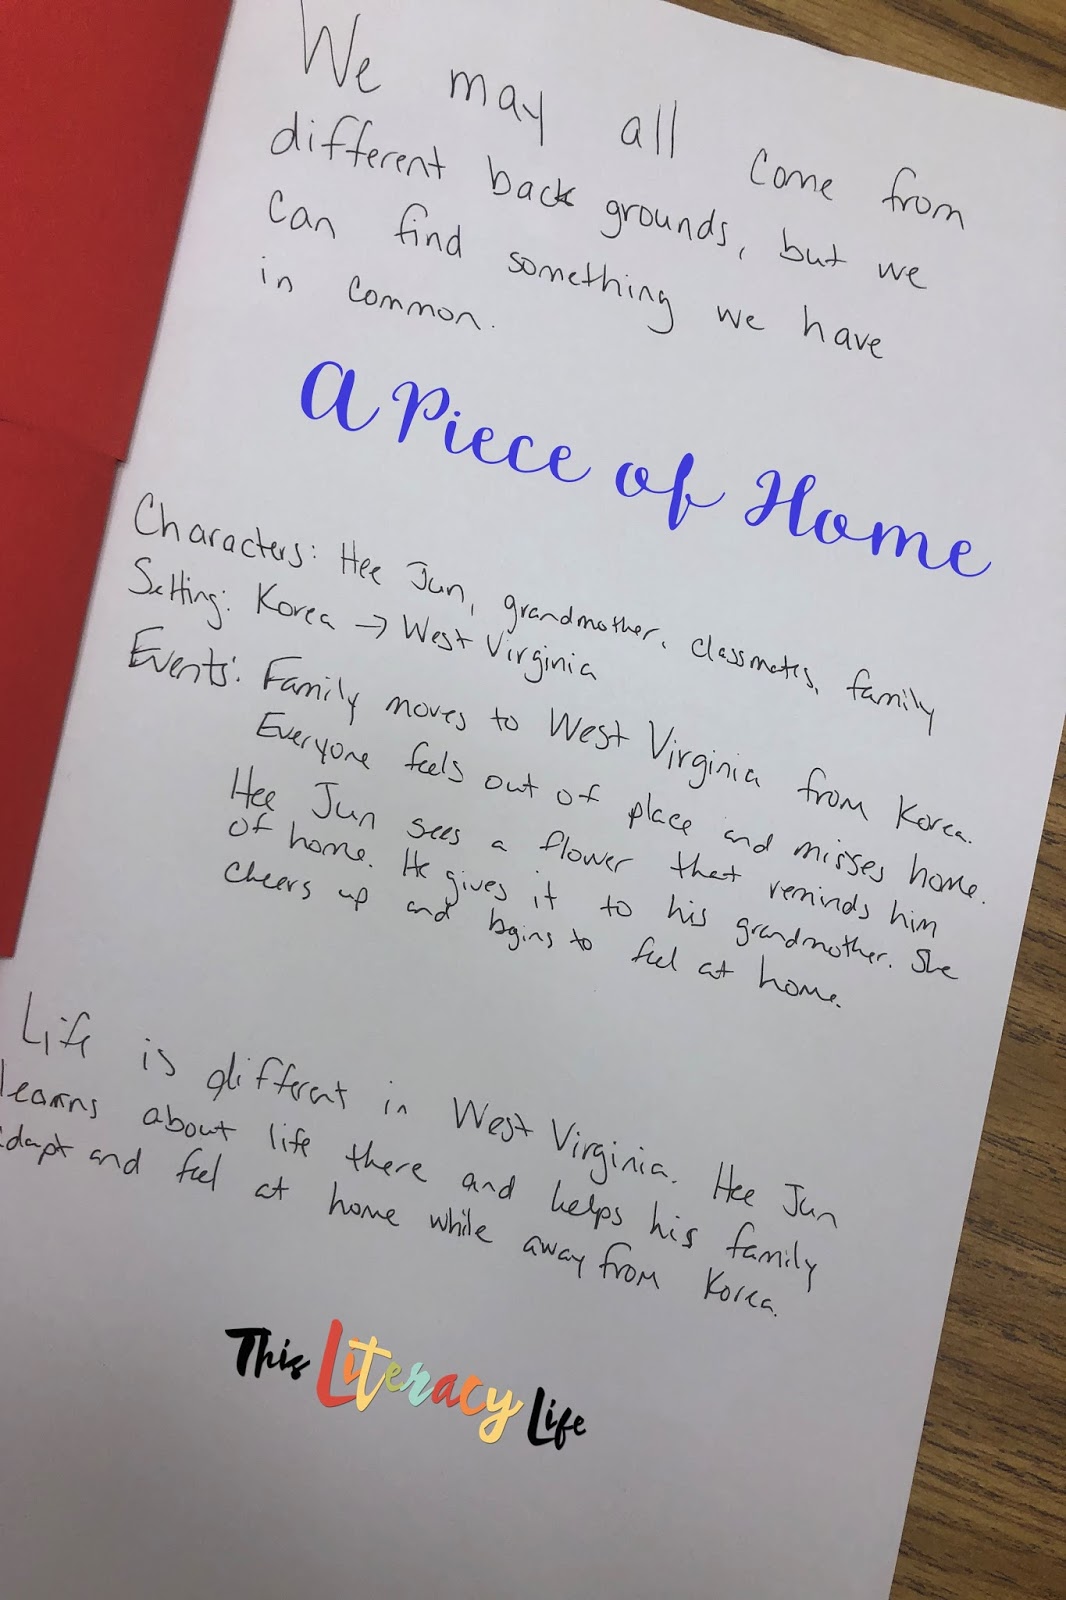 We may all come from
different back grounds, but we
can find something we have
in common.
A Piece of Home
Characters: Hee Jun, grandmother, classmates, family
Setting: Korea → West Virginia
Events: Family moves to West Virginia from Korea.
Everyone feels out of place and misses home.
Hee Jun sees a flower that reminds him
of home. He gives it to his grandmother. She
cheers up and begins to feel at home.
Life is different in West Virginia. Hee Jun
learns about life there and helps his family
adapt and feel at home while away from Korea.
This Literacy Life